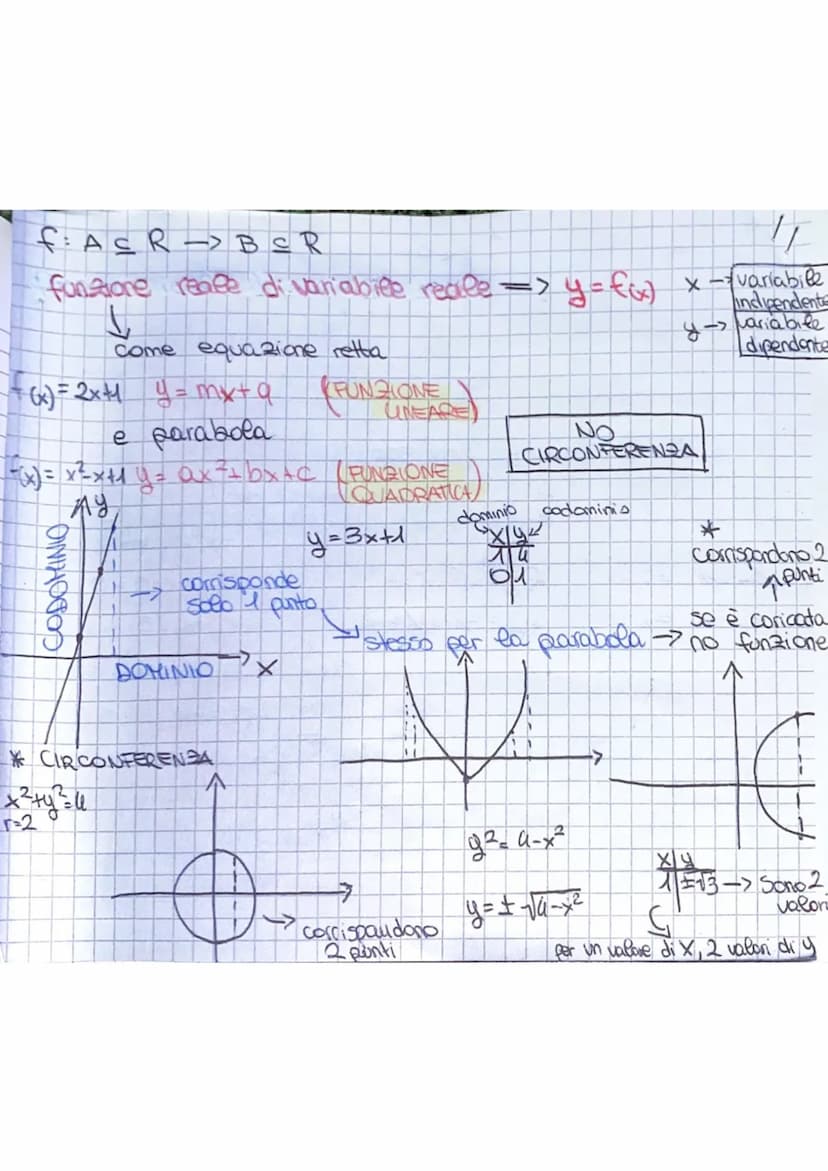 f: A ⊆ R -> B ⊆ R
funzione reale di variabile reale => y = f(x)
x -> variabile indipendente
y -> variabile dipendente
come equazione retta
f(x) = 2x+1 y = mx+q (FUNZIONE LINEARE)
e parabola
NO
CIRCONFERENZA
f(x) = x²-x+1 y = ax²+bx+c (FUNZIONE QUADRATICA)
y
CODOMINIO
DOMINIO
x
-> corrisponde
solo 1 punto
y=3x+1
dominio codominio
x|y
1|4
0|1
*
corrispondono 2
punti
stesso per la parabola ->
se è coricata
no funzione
* CIRCONFERENZA
x²+y²=4
r=2
-> corrispondono
2 punti
y² = 4-x²
y = ± √4-x²
x|y
1|±√3 -> sono 2
valori
per un valore di x, 2 valori di y